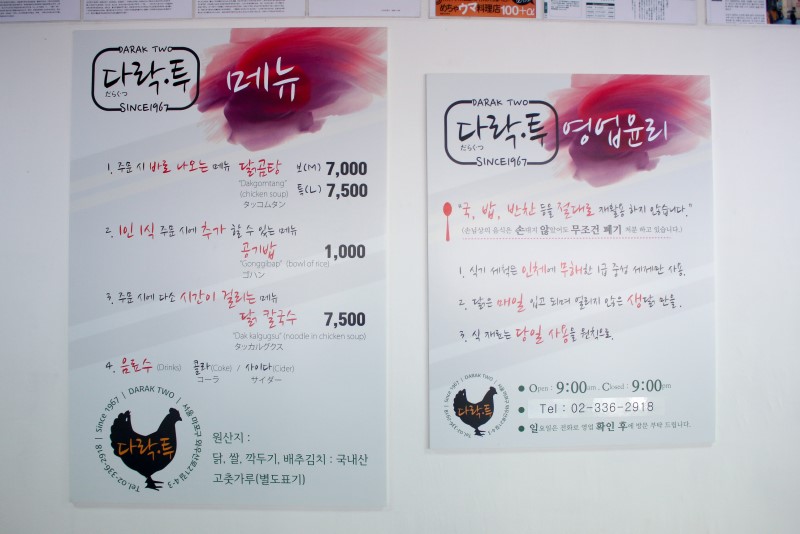 めちゃウマ料理店100+α
DARAK TWO
다락·투
だらくつ
SINCE1967
메뉴
1. 주문 시 바로 나오는 메뉴 닭곰탕 보(M) 7,000
"Dakgomtang"
(chicken soup)
タッコムタン
특(L) 7,500
2. 1인 1식 주문 시에 추가 할 수 있는 메뉴
공기밥 1,000
"Gonggibap" (bowl of rice)
ゴハン
3. 주문 시에 다소 시간이 걸리는 메뉴
닭 칼국수 7,500
"Dak kalgugsu" (noodle in chicken soup)
タッカルグクス
4. 음료수 (Drinks) 콜라(Coke) / 사이다(Cider)
コーラ サイダー
DARAK TWO | 서울 마포구 와우산로21길4-3
Tel.02-336-2918 | Since 1967 |
다락·투
원산지 :
닭, 쌀, 깍두기, 배추김치 : 국내산
고춧가루(별도표기)
DARAK TWO
다락·투
だらくつ
SINCE1967
영업윤리
"국, 밥, 반찬 등을 절대로 재활용 하지 않습니다."
(손님상의 음식은 손대지 않았어도 무조건 폐기 처분 하고 있습니다.)
1. 식기 세척는 인체에 무해한 1급 중성 세제만 사용.
2. 닭은 매일 입고 되며 얼리지 않은 생닭 만을.
3. 식 재료는 당일 사용을 원칙으로.
Since 1967 | DARAK TWO |
다락·투
Open : 9:00am . Closed : 9:00pm
Tel : 02-336-2918
일요일은 전화로 영업 확인 후에 방문 부탁 드립니다.